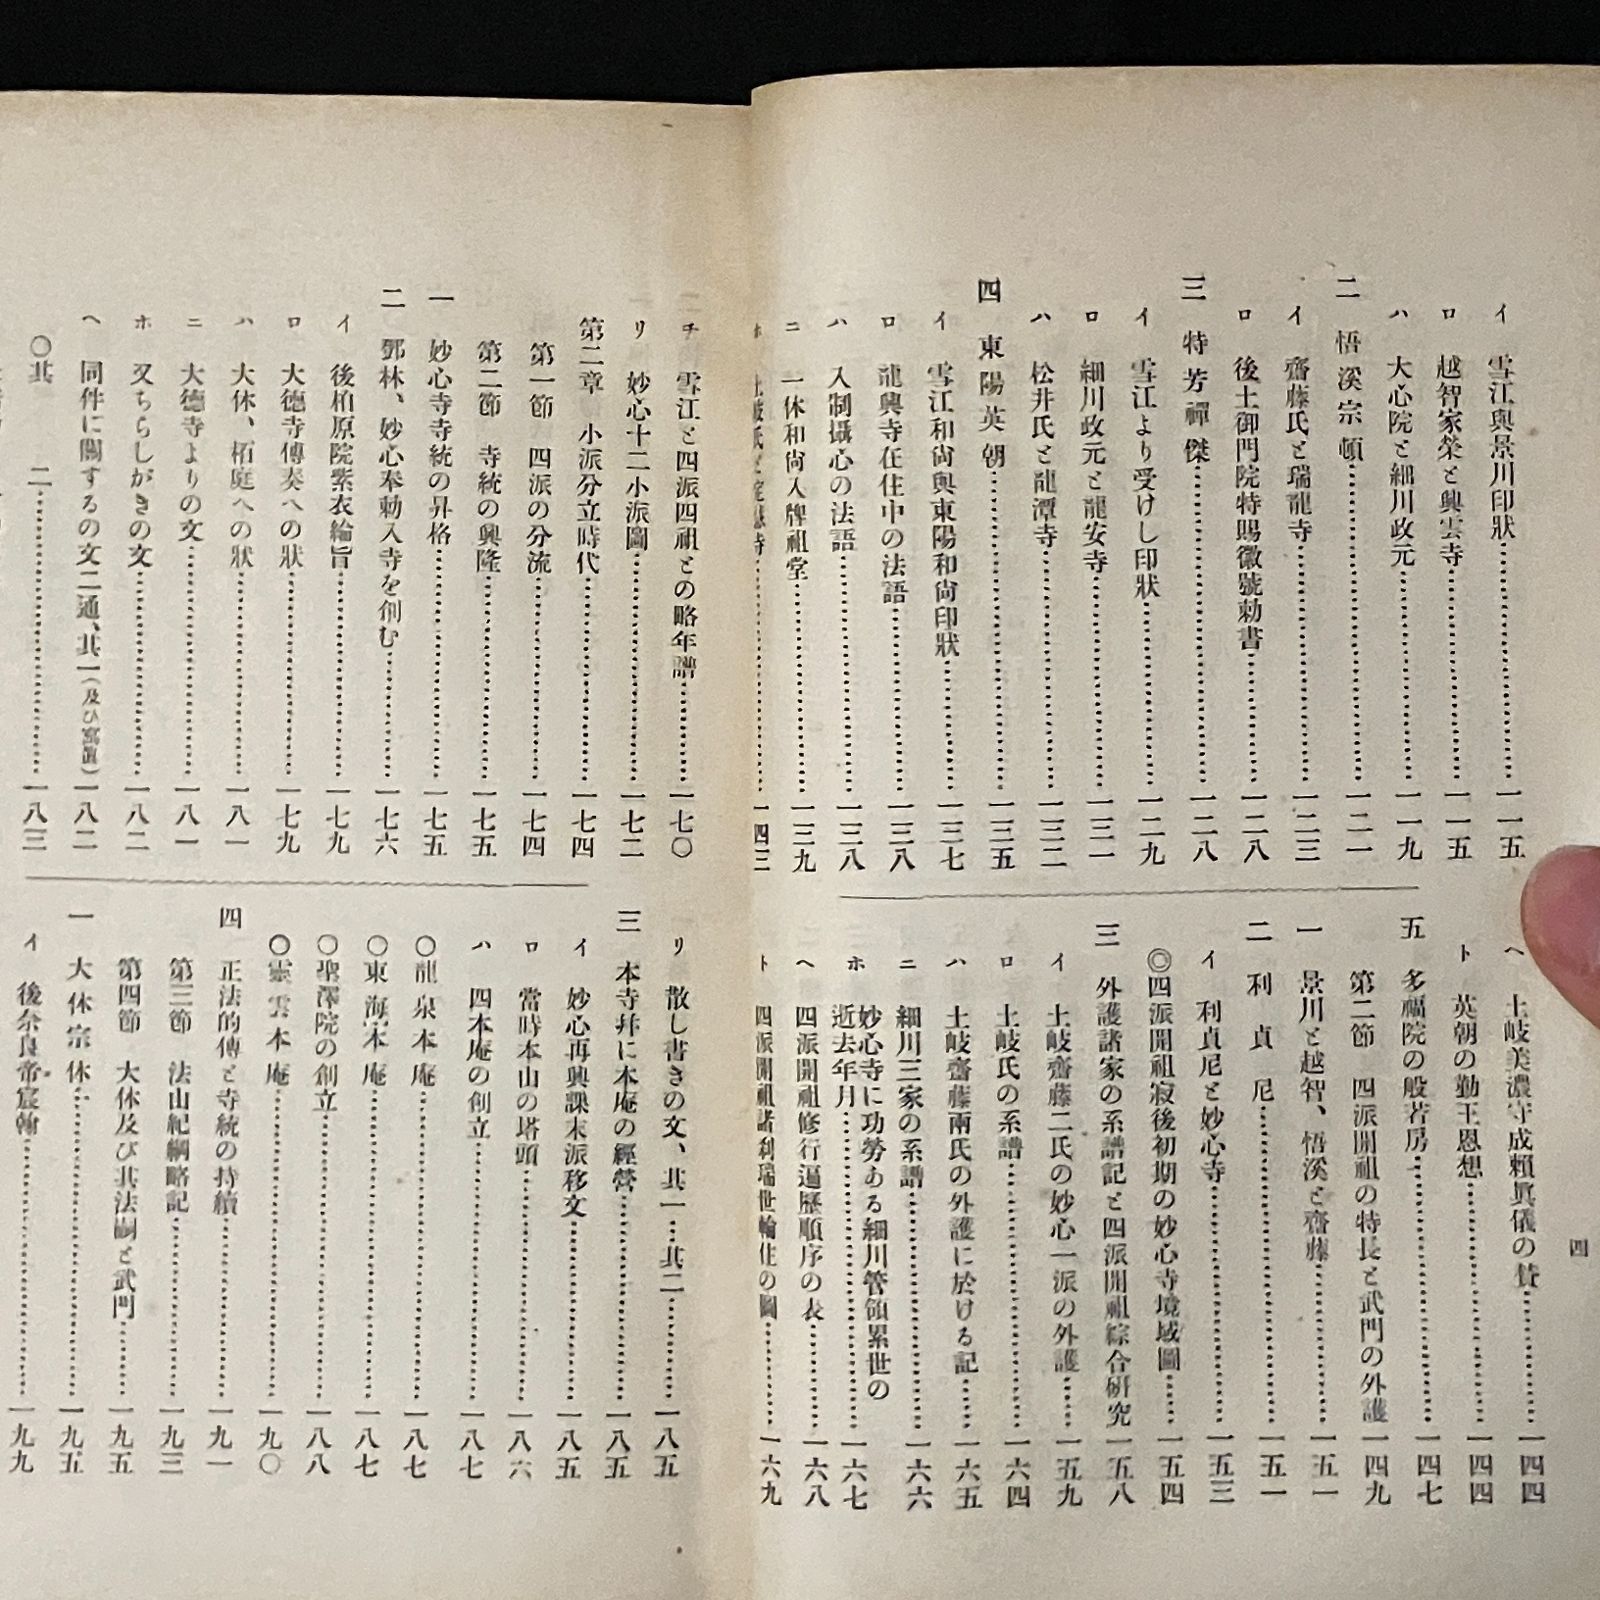 イ 雪江與景川印狀…………一一五
ロ 越智家榮と興雲寺…………一一五
ハ 大心院と細川政元…………一一九
二 悟溪宗頓…………一二一
イ 齋藤氏と瑞龍寺…………一二三
ロ 後土御門院特賜徽號勅書…………一二八
三 特芳禪傑…………一二八
イ 雪江より受けし印狀…………一二九
ロ 細川政元と龍安寺…………一三一
ハ 松井氏と龍潭寺…………一三二
四 東陽英朝…………一三五
イ 雪江和尙與東陽和尙印狀…………一三七
ロ 龍興寺在住中の法語…………一三八
ハ 入制攝心の法語…………一三八
ニ 一休和尙入牌祖堂…………一三九
ホ…………一四三
ヘ 土岐美濃守成賴眞儀の賛…………一四四
ト 英朝の勤王思想…………一四四
五 多福院の般若房…………一四七
第二節 四派開祖の特長と武門の外護 一四九
一 景川と越智、悟溪と齋藤…………一五一
二 利貞尼…………一五一
イ 利貞尼と妙心寺…………一五三
◎四派開祖寂後初期の妙心寺境域圖…………一五四
三 外護諸家の系譜記と四派開祖綜合硏究 一五八
イ 土岐齋藤二氏の妙心一派の外護…………一五九
ロ 土岐氏の系譜…………一六四
ハ 土岐齋藤兩氏の外護に於ける記…………一六五
ニ 細川三家の系譜…………一六六
ホ 妙心寺に功勞ある細川管領累世の
近去年月…………一六七
ヘ 四派開祖修行遍歷順序の表…………一六八
ト 四派開祖諸刹瑞世輪住の圖…………一六九
四
チ 雪江と四派四祖との略年譜…………一七〇
リ 妙心十二小派圖…………一七二
第二章 小派分立時代…………一七四
第一節 四派の分流…………一七四
第二節 寺統の興隆…………一七五
一 妙心寺寺統の昇格…………一七五
二 鄧林、妙心奉勅入寺を創む…………一七六
イ 後柏原院紫衣綸旨…………一七九
ロ 大德寺傳奏への狀…………一七九
ハ 大休、栢庭への狀…………一八一
ニ 大德寺よりの文…………一八一
ホ 又ちらしがきの文…………一八二
ヘ 同件に關するの文二通、其一(及び) 一八二
〇其 二…………一八三
リ 散し書きの文、其一…其二…………一八五
三 本寺幷に本庵の經營…………一八五
イ 妙心再興課末派移文…………一八五
ロ 當時本山の塔頭…………一八六
ハ 四本庵の創立…………一八七
〇龍泉本庵…………一八七
〇東海本庵…………一八七
〇聖澤院の創立…………一八八
〇靈雲本庵…………一九〇
四 正法的傳と寺統の持續…………一九一
第三節 法山紀綱略記…………一九三
第四節 大休及び其法嗣と武門…………一九五
一 大休宗休…………一九五
イ 後奈良帝宸翰…………一九九